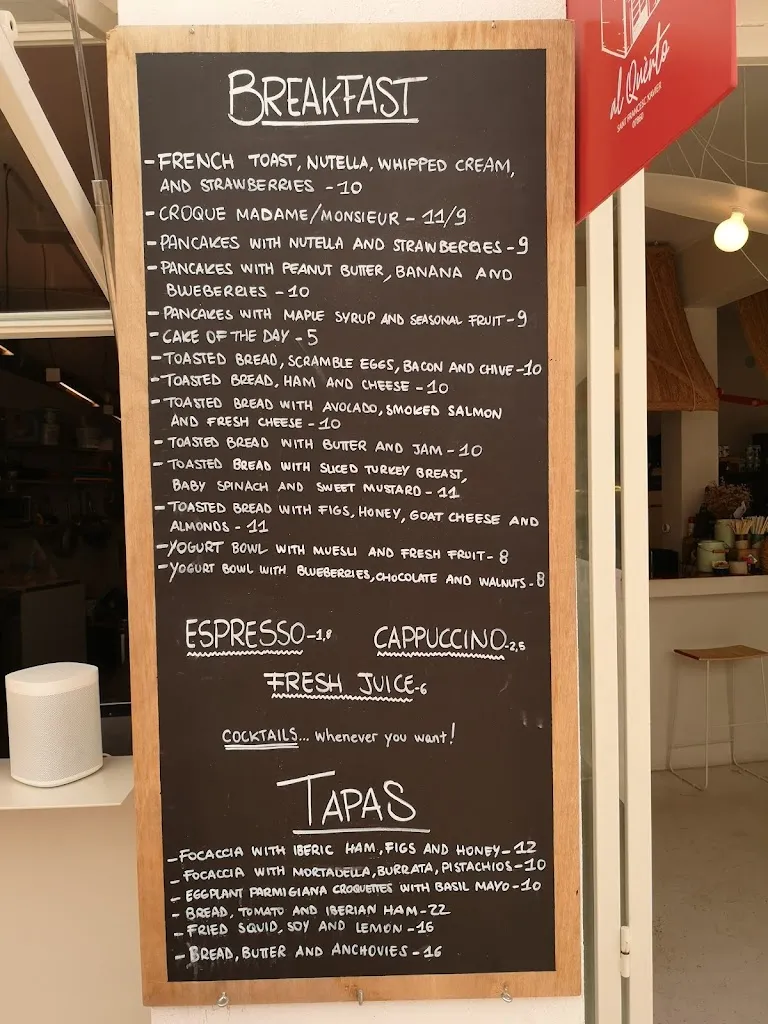 al Quinto
SANT FRANCESC XAVIER
BREAKFAST
- FRENCH TOAST, NUTELLA, WHIPPED CREAM,
AND STRAWBERRIES - 10
- CROQUE MADAME/MONSIEUR - 11/9
- PANCAKES WITH NUTELLA AND STRAWBERRIES - 9
- PANCAKES WITH PEANUT BUTTER, BANANA AND
BLWEBERRIES - 10
- PANCAKES WITH MAPLE SYRUP AND SEASONAL FRUIT - 9
- CAKE OF THE DAY - 5
- TOASTED BREAD, SCRAMBLE EGGS, BACON AND CHIVE - 10
- TOASTED BREAD, HAM AND CHEESE - 10
- TOASTED BREAD WITH AVOCADO, SMOKED SALMON
AND FRESH CHEESE - 10
- TOASTED BREAD WITH BUTTER AND JAM - 10
- TOASTED BREAD WITH SLICED TURKEY BREAST,
BABY SPINACH AND SWEET MUSTARD - 11
- TOASTED BREAD WITH FIGS, HONEY, GOAT CHEESE AND
ALMONDS - 11
- YOGURT BOWL WITH MUESLI AND FRESH FRUIT - 8
- YOGURT BOWL WITH BLUEBERRIES, CHOCOLATE AND WALNUTS - 8
ESPRESSO - 1,8 CAPPUCCINO - 2,5
FRESH JUICE - 6
COCKTAILS... whenever you want!
TAPAS
- FOCACCIA WITH IBERIC HAM, FIGS AND HONEY - 12
- FOCACCIA WITH MORTADELLA, BURRATA, PISTACHIOS - 10
- EGGPLANT PARMIGIANA CROQUETTES WITH BASIL MAYO - 10
- BREAD, TOMATO AND IBERIAN HAM - 22
- FRIED SQUID, SOY AND LEMON - 16
- BREAD, BUTTER AND ANCHOVIES - 16